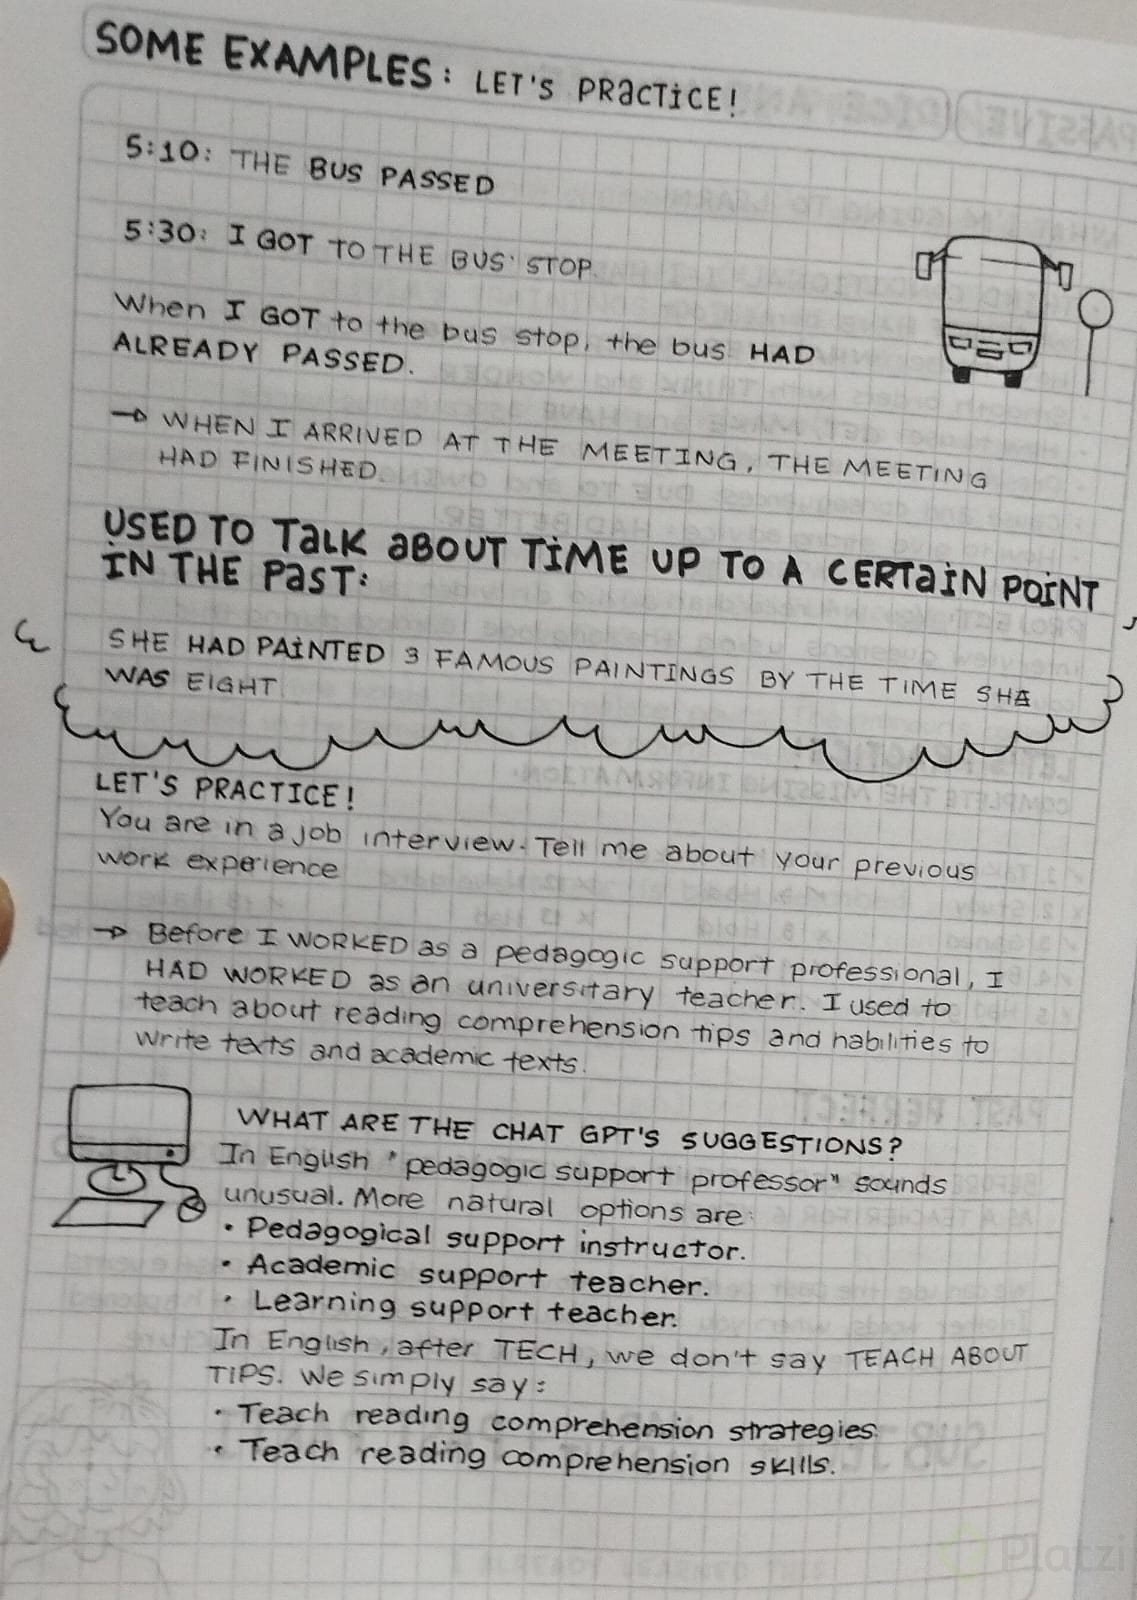 SOME EXAMPLES: LET'S PRACTICE!
5:10: THE BUS PASSED
5:30: I GOT TO THE BUS STOP.
When I GOT to the bus stop, the bus HAD
ALREADY PASSED.
→ WHEN I ARRIVED AT THE MEETING, THE MEETING
HAD FINISHED.
USED TO TALK ABOUT TIME UP TO A CERTAIN POINT
IN THE PAST:
SHE HAD PAINTED 3 FAMOUS PAINTINGS BY THE TIME SHE
WAS EIGHT
LET'S PRACTICE!
You are in a job interview. Tell me about your previous
work experience
→ Before I WORKED as a pedagogic support professional, I
HAD WORKED as an universitary teacher. I used to
teach about reading comprehension tips and habilities to
write texts and academic texts.
WHAT ARE THE CHAT GPT'S SUGGESTIONS?
In English "pedagogic support professor" sounds
unusual. More natural options are:
• Pedagogical support instructor.
• Academic support teacher.
• Learning support teacher.
In English, after TECH, we don't say TEACH ABOUT
TIPS. We simply say:
• Teach reading comprehension strategies.
• Teach reading comprehension skills.
Platzi